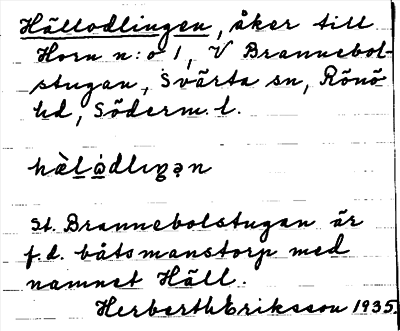 Hällodlingen, åker till
Horn n:o 1, V Brannebol-
stugan, Svärta sn, Rönö
hd, Söderm. l.
St. Brannebolstugan är
f.d. båtsmanstorp med
namnet Häll.
Herberth Eriksson 1935.